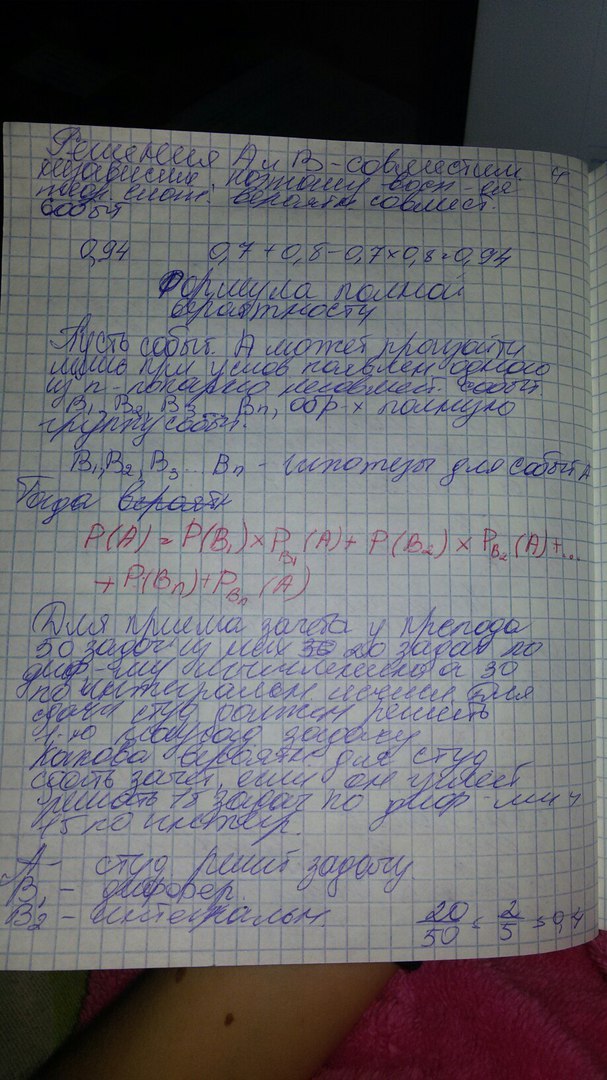 Решения А и В - совместим 4
независим поэтому восп-ся
теор. слож. вероятн совмест.
событ
0,94 0,7 + 0,8 - 0,7 × 0,8 = 0,94
Формула полной
вероятносту
Пусть событ. А может произойти
лишь при услов появлен одного
из n - попарно несовмест. событ
В1, В2, В3 ... Вn, обр-х полную
группу событ.
В1, В2, В3 ... Вn - гипотезы для событ А
Тогда вероятн
P(A) = P(B1) × PB1(A) + P(B2) × PB2(A) + ...
+ P(Bn) + PBn(A)
Для приема зачета у препода
50 задач из них 30 20 задач по
диф-му исчислению а 30
по интегральн исчисл Для
сдачи студ должен решить
1-ю задачу
Какова вероятн для студ
сдать зачет, если он умеет
решать 18 задач по диф-
15 по интегр.
А - студ решит задачу
В1 - диффер.
В2 - интегральн. 20/50 = 2/5 = 0,4